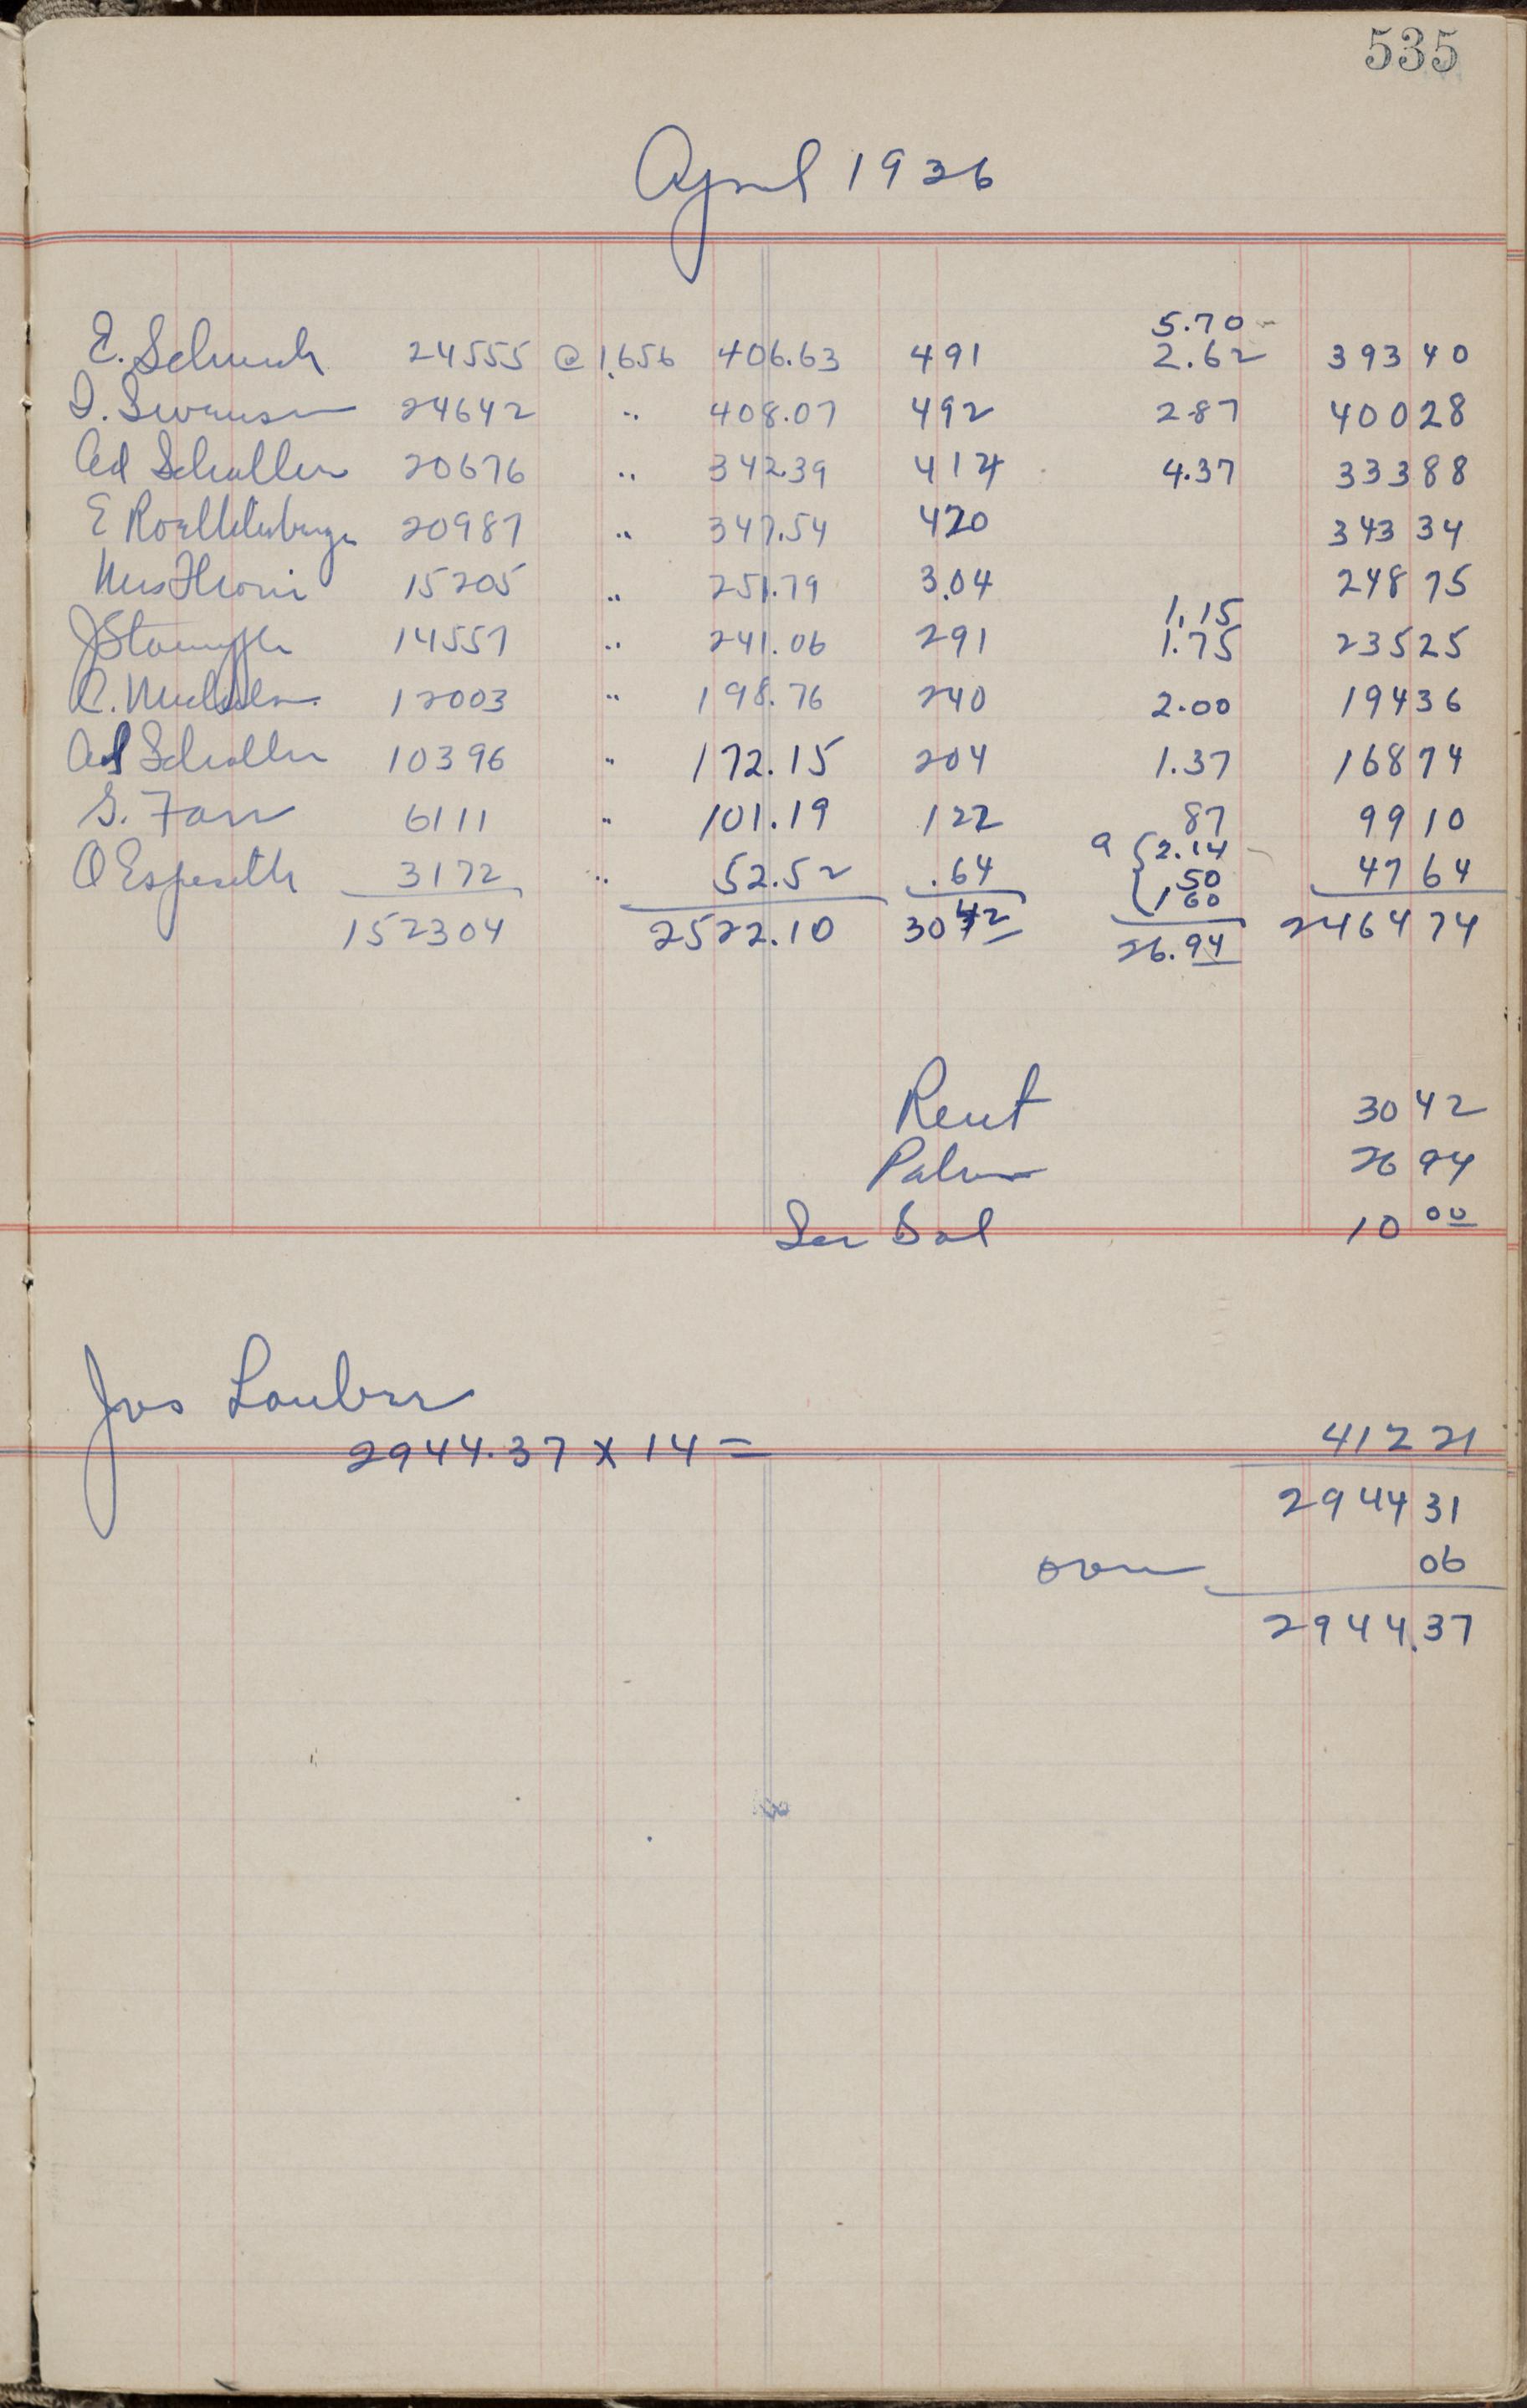 535
April 1936
5.70
E. Schuch 24555 @ 1.656 406.63 491 2.62 393 40
D. Swenson 24642 " 408.07 492 2.87 400 28
Ad Schaller 20676 " 342.39 414 4.37 333 88
E 20987 " 347.54 420 343 34
Mrs 15205 " 251.79 3.04 248 75
1.15
J Stampfli 14557 " 241.06 291 1.75 235 25
12003 " 198.76 240 2.00 194 36
Ad Schaller 10396 " 172.15 204 1.37 168 74
G. Farr 6111 " 101.19 122 87 99 10
a 2.14
O Espeseth 3172 " 52.52 .64 50 47 64
1 60
152304 2522.10 30 42 26.94 2464 74
Rent 30 42
26 94
10 00
Jos Laubar
2944.37 x 14 = 412 21
2944 31
over 06
2944.37